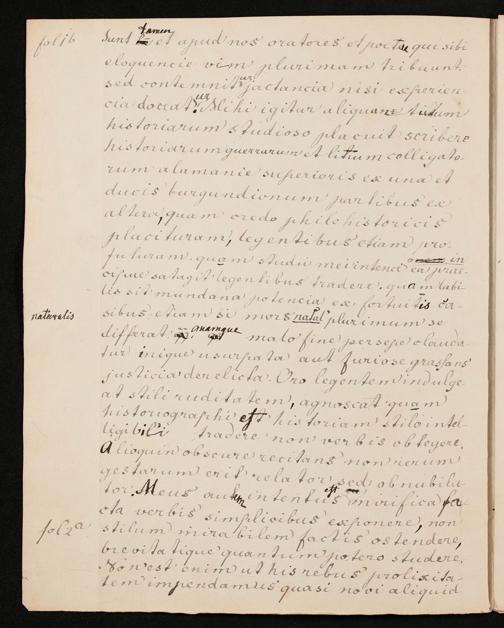 fol 1b
Sunt tamen et apud nos oratores et poetae qui sibi
eloquencie vim plurimam tribuunt.
sed contemnitur jactancia nisi experien
cia doceatur. Mihi igitur aliquan
historiarum studioso placuit scribere
historiarum guerrarum et litium colligato
rum alamanie superioris ex una et
ducis burgundionum partibus ex
altera, quam credo philohistoricis
placituram, legentibus etiam pro
futuram. quam studii mei intenci in ea prae
cipue satagit legentibus tradere. quam labi
lis sit mundana potencia ex fortuitis ca-
naturalis
sibus etiam si mors natal plurimum se
differat. quamque malo fine persepe clauda
tur inique usurpata aut furiose grassans
justicia derelicta. Oro legentem indulge
at stili ruditatem, agnoscat quam
historiographi est historiam stilo intel-
ligibili tradere non verbis obtegere,
Alioquin obscure recitans non rerum
gestarum erit relator sed obnubila
tor. Meus autem intentus est mirifica fa
cta verbis simplicibus exponere, non
fol 2a
stilum mirabilem factis ostendere,
brevitatique quantum potero studere,
Non est enim ut his rebus prolixita-
tem impendamus quasi novi aliquid